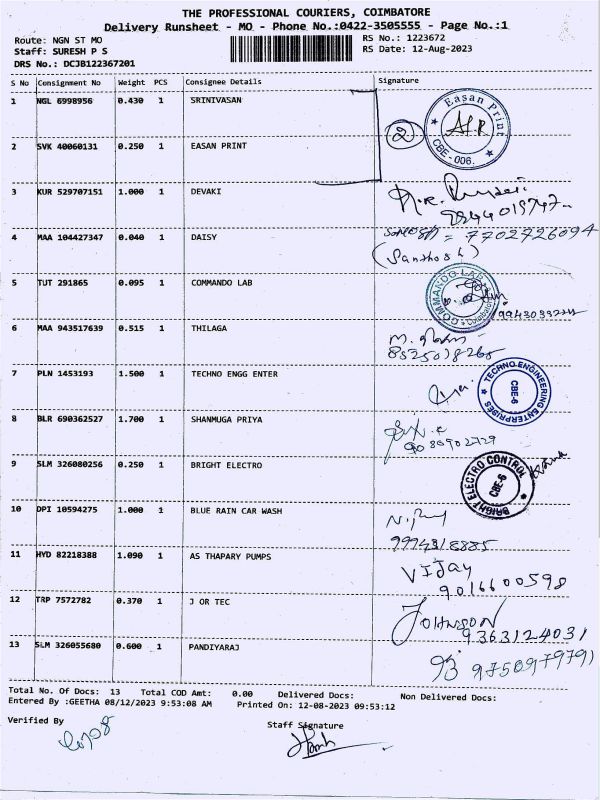 THE PROFESSIONAL COURIERS, COIMBATORE
Delivery Runsheet - MO - Phone No.:0422-3505555 - Page No.:1
Route: NGN ST MO RS No.: 1223672
Staff: SURESH P S RS Date: 12-Aug-2023
DRS No.: DCJB122367201
S No Consignment No Weight PCS Consignee Details Signature
1 NGL 6998956 0.430 1 SRINIVASAN
2 Easan Print CBE-006.
2 SVK 40060131 0.250 1 EASAN PRINT
3 KUR 529707151 1.000 1 DEVAKI
4 MAA 104427347 0.040 1 DAISY 7702726094
(Santhosh)
5 TUT 291865 0.095 1 COMMANDO LAB COMMANDO LAB
6 MAA 943517639 0.515 1 THILAGA
8525018265
7 PLN 1453193 1.500 1 TECHNO ENGG ENTER TECHNO ENGINEERING ENTERPRISES CBE-6
8 BLR 690362527 1.700 1 SHANMUGA PRIYA
9 SLM 326080256 0.250 1 BRIGHT ELECTRO BRIGHT ELECTRO CONTROL CBE-6
10 DPI 10594275 1.000 1 BLUE RAIN CAR WASH
11 HYD 82218388 1.090 1 AS THAPARY PUMPS VIJAY
9016600598
12 TRP 7572782 0.370 1 J OR TEC JOHNSON
9363124031
13 SLM 326055680 0.600 1 PANDIYARAJ
Total No. Of Docs: 13 Total COD Amt: 0.00 Delivered Docs: Non Delivered Docs:
Entered By :GEETHA 08/12/2023 9:53:08 AM Printed On: 12-08-2023 09:53:12
Verified By Staff Signature